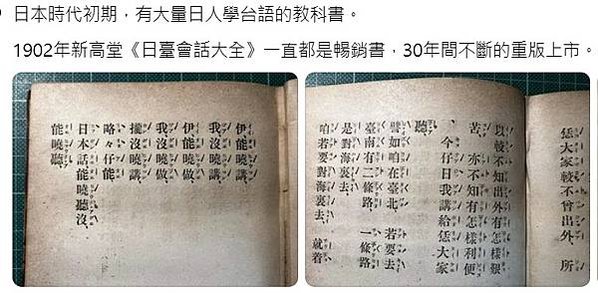 日本時代初期，有大量日人學台語的教科書。
1902年新高堂《日臺會話大全》一直都是暢銷書，30年間不斷的重版上市。
伊能曉講、
我沒曉講、
伊能曉做、
我沒曉做、
攏沒曉講、
略々仔能、
日本話能曉聽沒、
能曉聽、
恁大家較不曾出外、所
以較不知出外有怎樣艱
苦、亦不知有怎樣利便、
今仔日我講給恁大家
聽、
譬如咱在臺北、若要去
臺南有二條路、一條路
是對海裏去、
咱若要對海裏去、就着